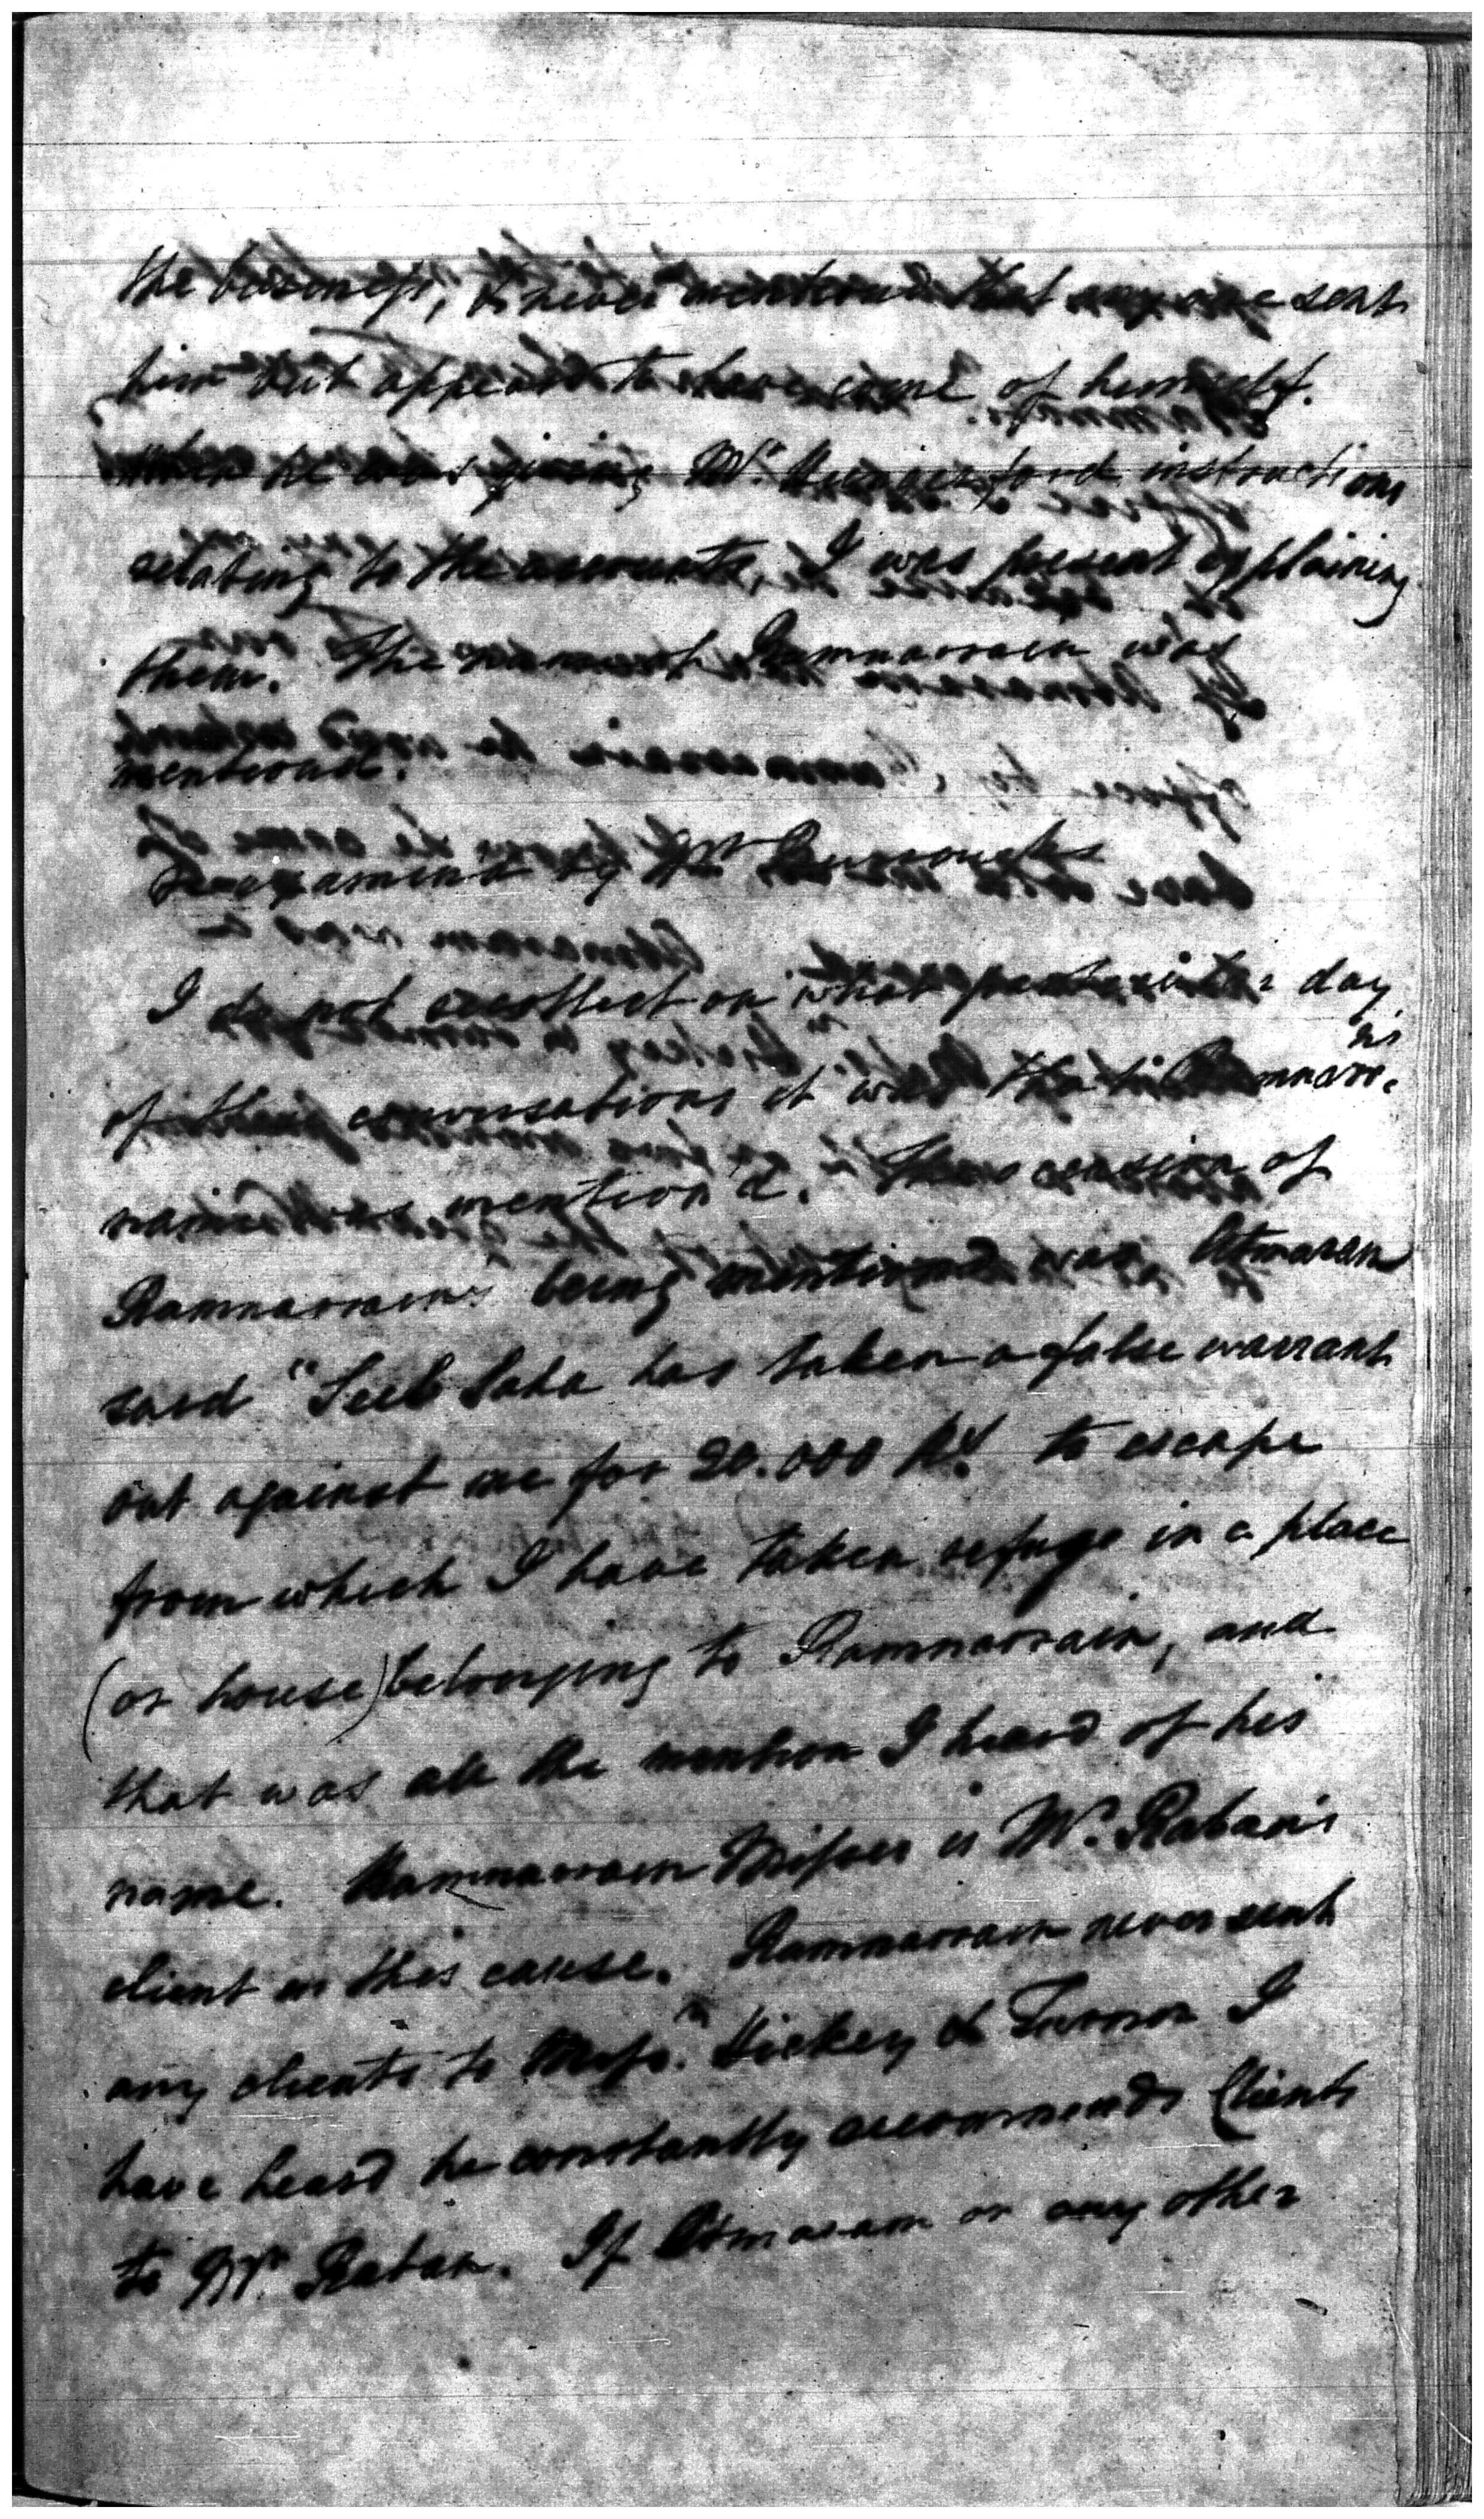 the business, & never mentioned that any one sent
him but appeared to have come of himself.
When he was giving Mr. Hungerford instructions
relating to the accounts, I was present explaining
them. The name of Ramnarrain was
mentioned.
Re-examined by Mr Burroughs
I do not recollect on what particular day
of these conversations it was that Ramnarrns
name was mention'd. The occasion of
Ramnarrain's being mentioned was, Atmaram
said "Seeb Saha has taken a false warrant
out against me for 20.000 Rs. to escape
from which I have taken refuge in a place
(or house) belonging to Ramnarrain, and
that was all the mention I heard of his
name. Ramnarrain Misser is Mr. Raban's
client in this cause. Ramnarrain never sent
any clients to Messrs. Hickey & Turner I
have heard he constantly recommends Clients
to Mr. Raban. If Atmaram or any other